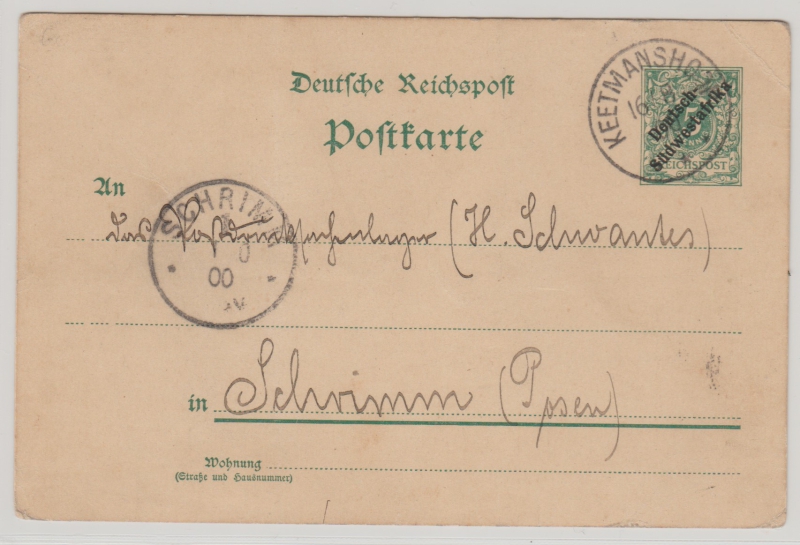 Deutsche Reichspost
Postkarte
KEETMANSHO
16
Deutsch-
Südwestafrika
REICHSPOST
An
das Postdrucksachenlager (H. Schwantes)
SCHRIMM
00
in Schrimm (Posen)
Wohnung
(Straße und Hausnummer)